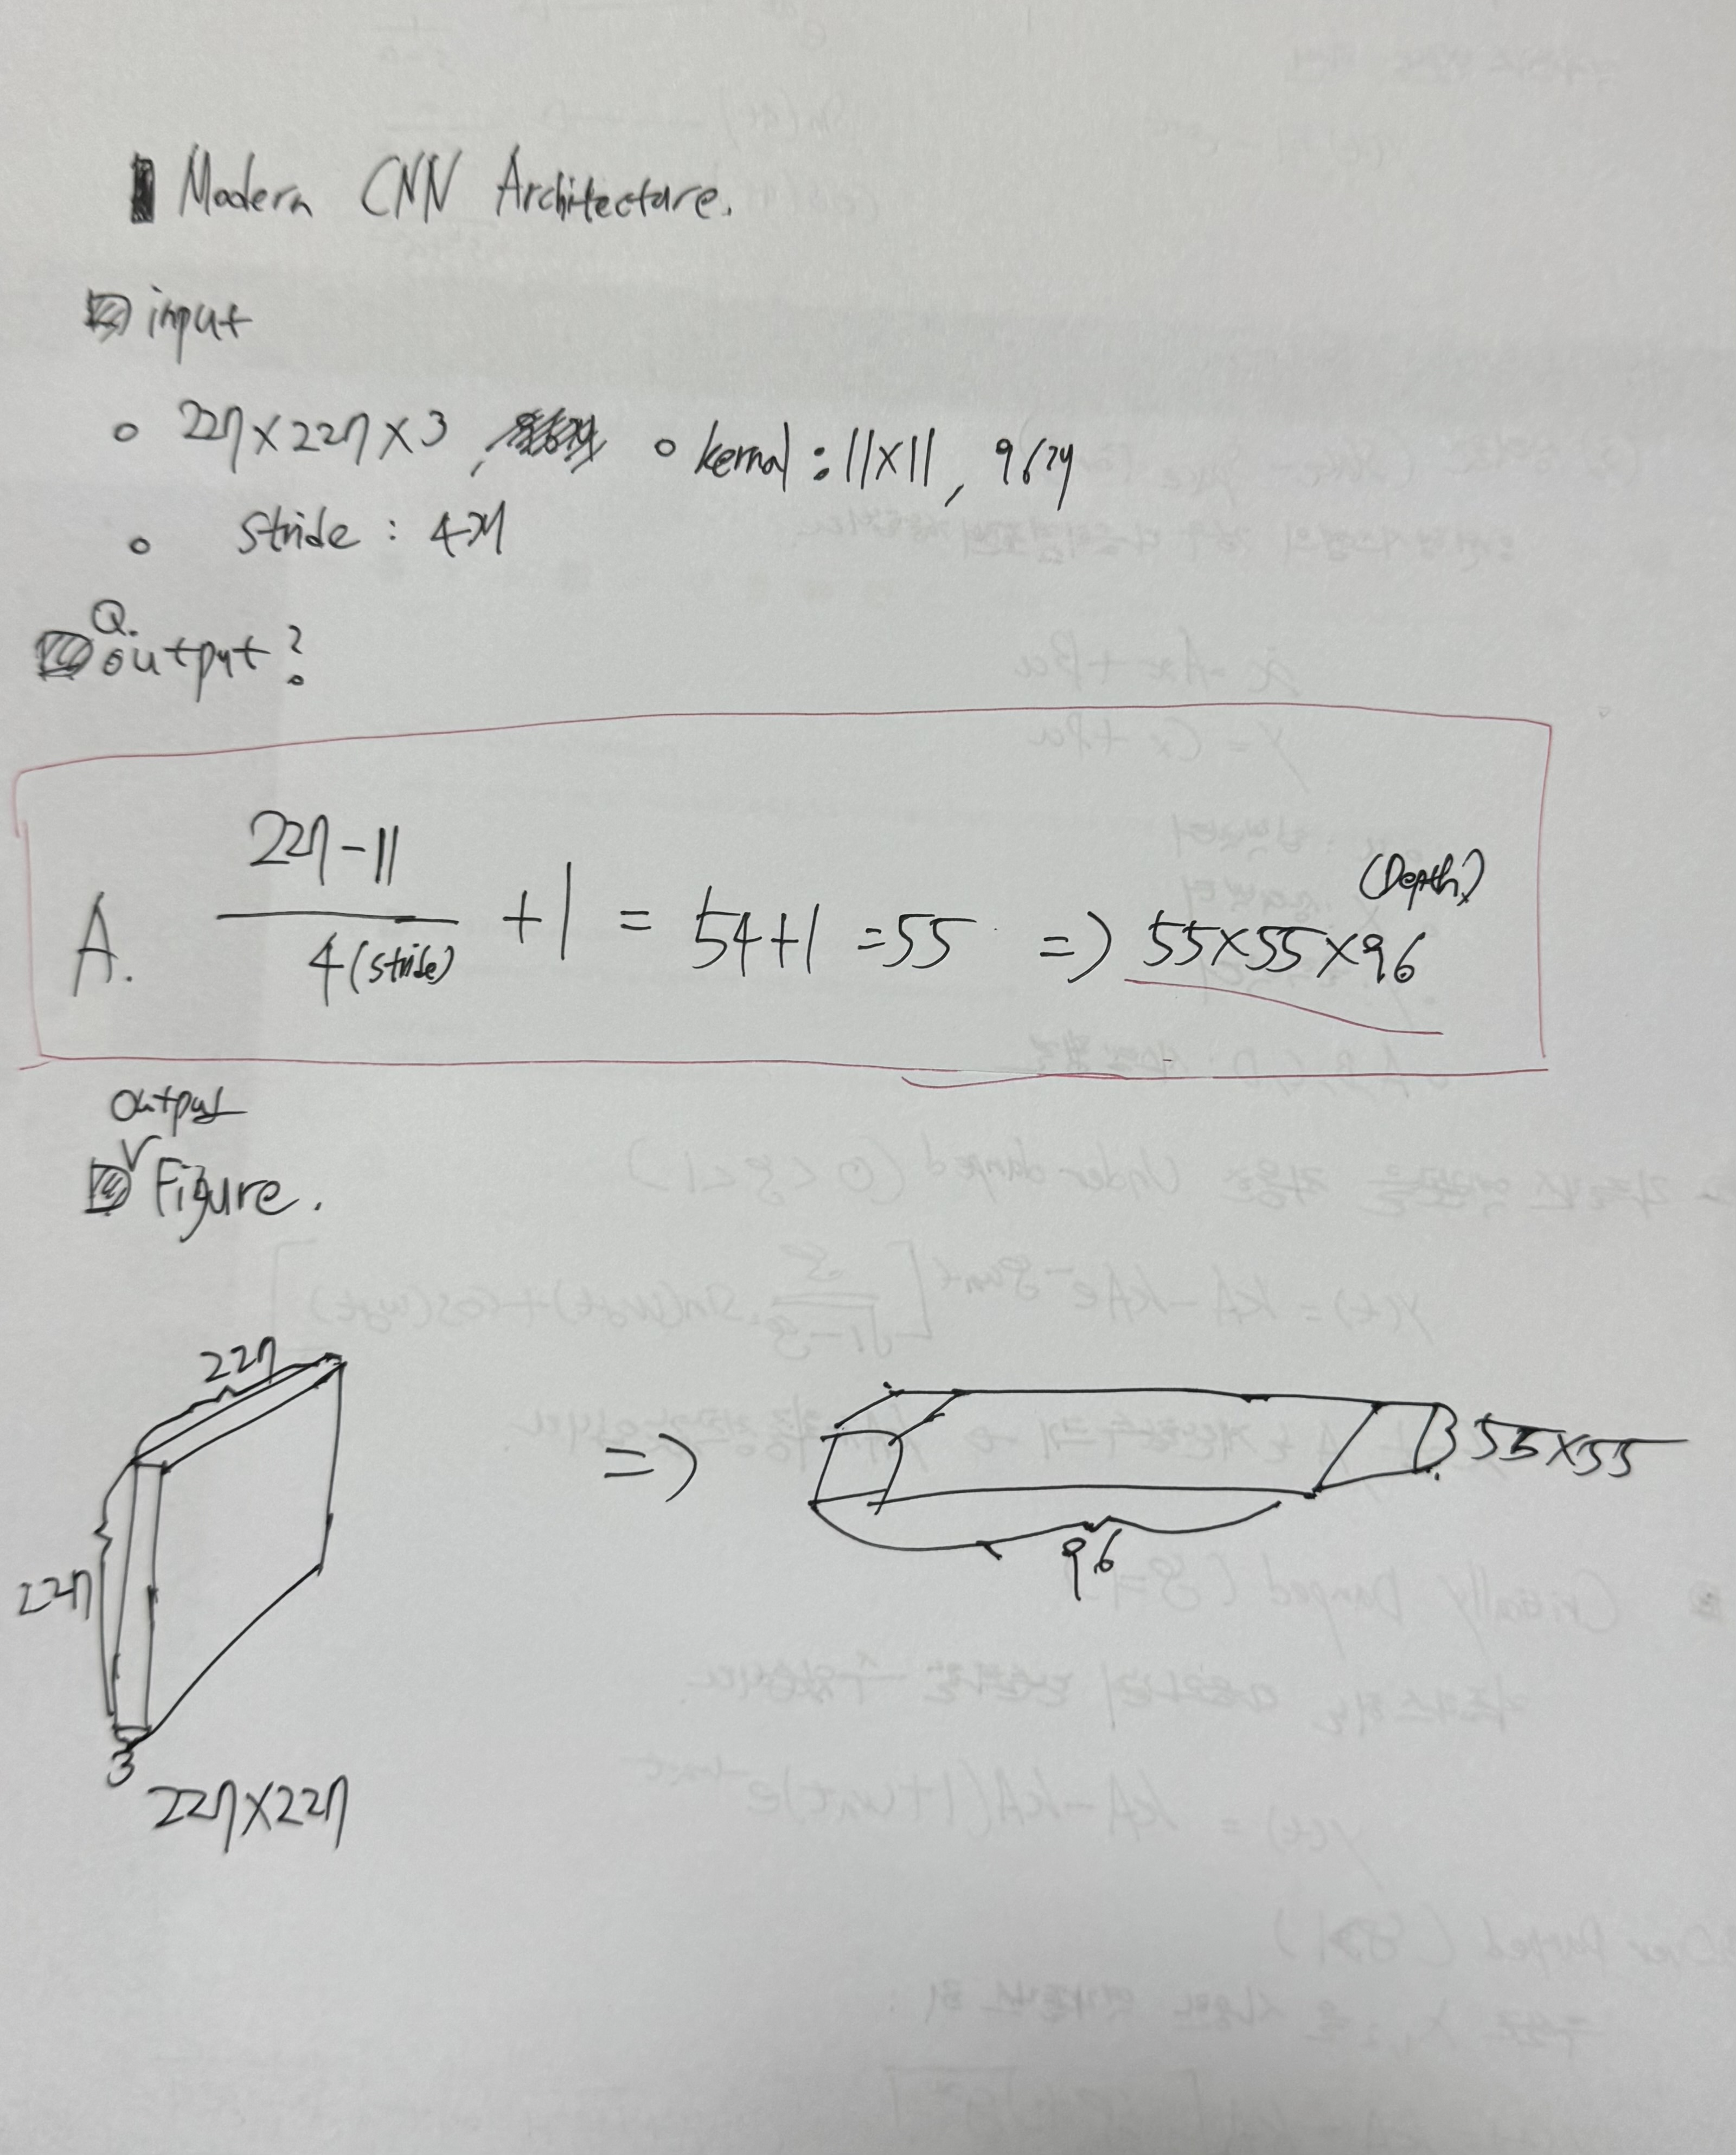 Modern CNN Architecture.
input
227×227×3, kernel : 11×11, 96개
stride : 4개
Q.
output?
A. 227-11 / 4(stride) + 1 = 54+1 = 55 => 55×55×96 (Depth)
output
Figure.
227
227
3
227×227
=>
55×55
96